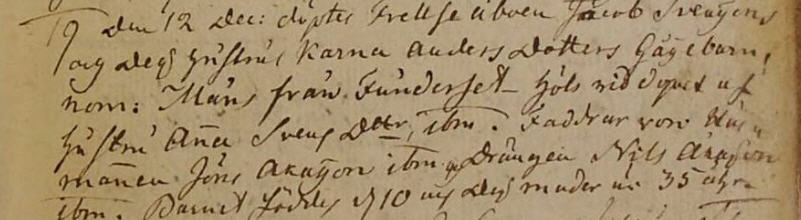 19 den 12 Dec: döptes Frellse åboen Jacob Svensons
og Dess Hustrus Karna Anders Dotters Gåssebarn,
nom: Måns från Funderset Höls vid dopet af
Hustru Aña Svens Dttr, ibm. Faddrar vore Hus
mañen Jöns Akasson ibm, Drängen Nils Akasson
ibm. Barnet föddes d 10 og dess moder är 35 åhr